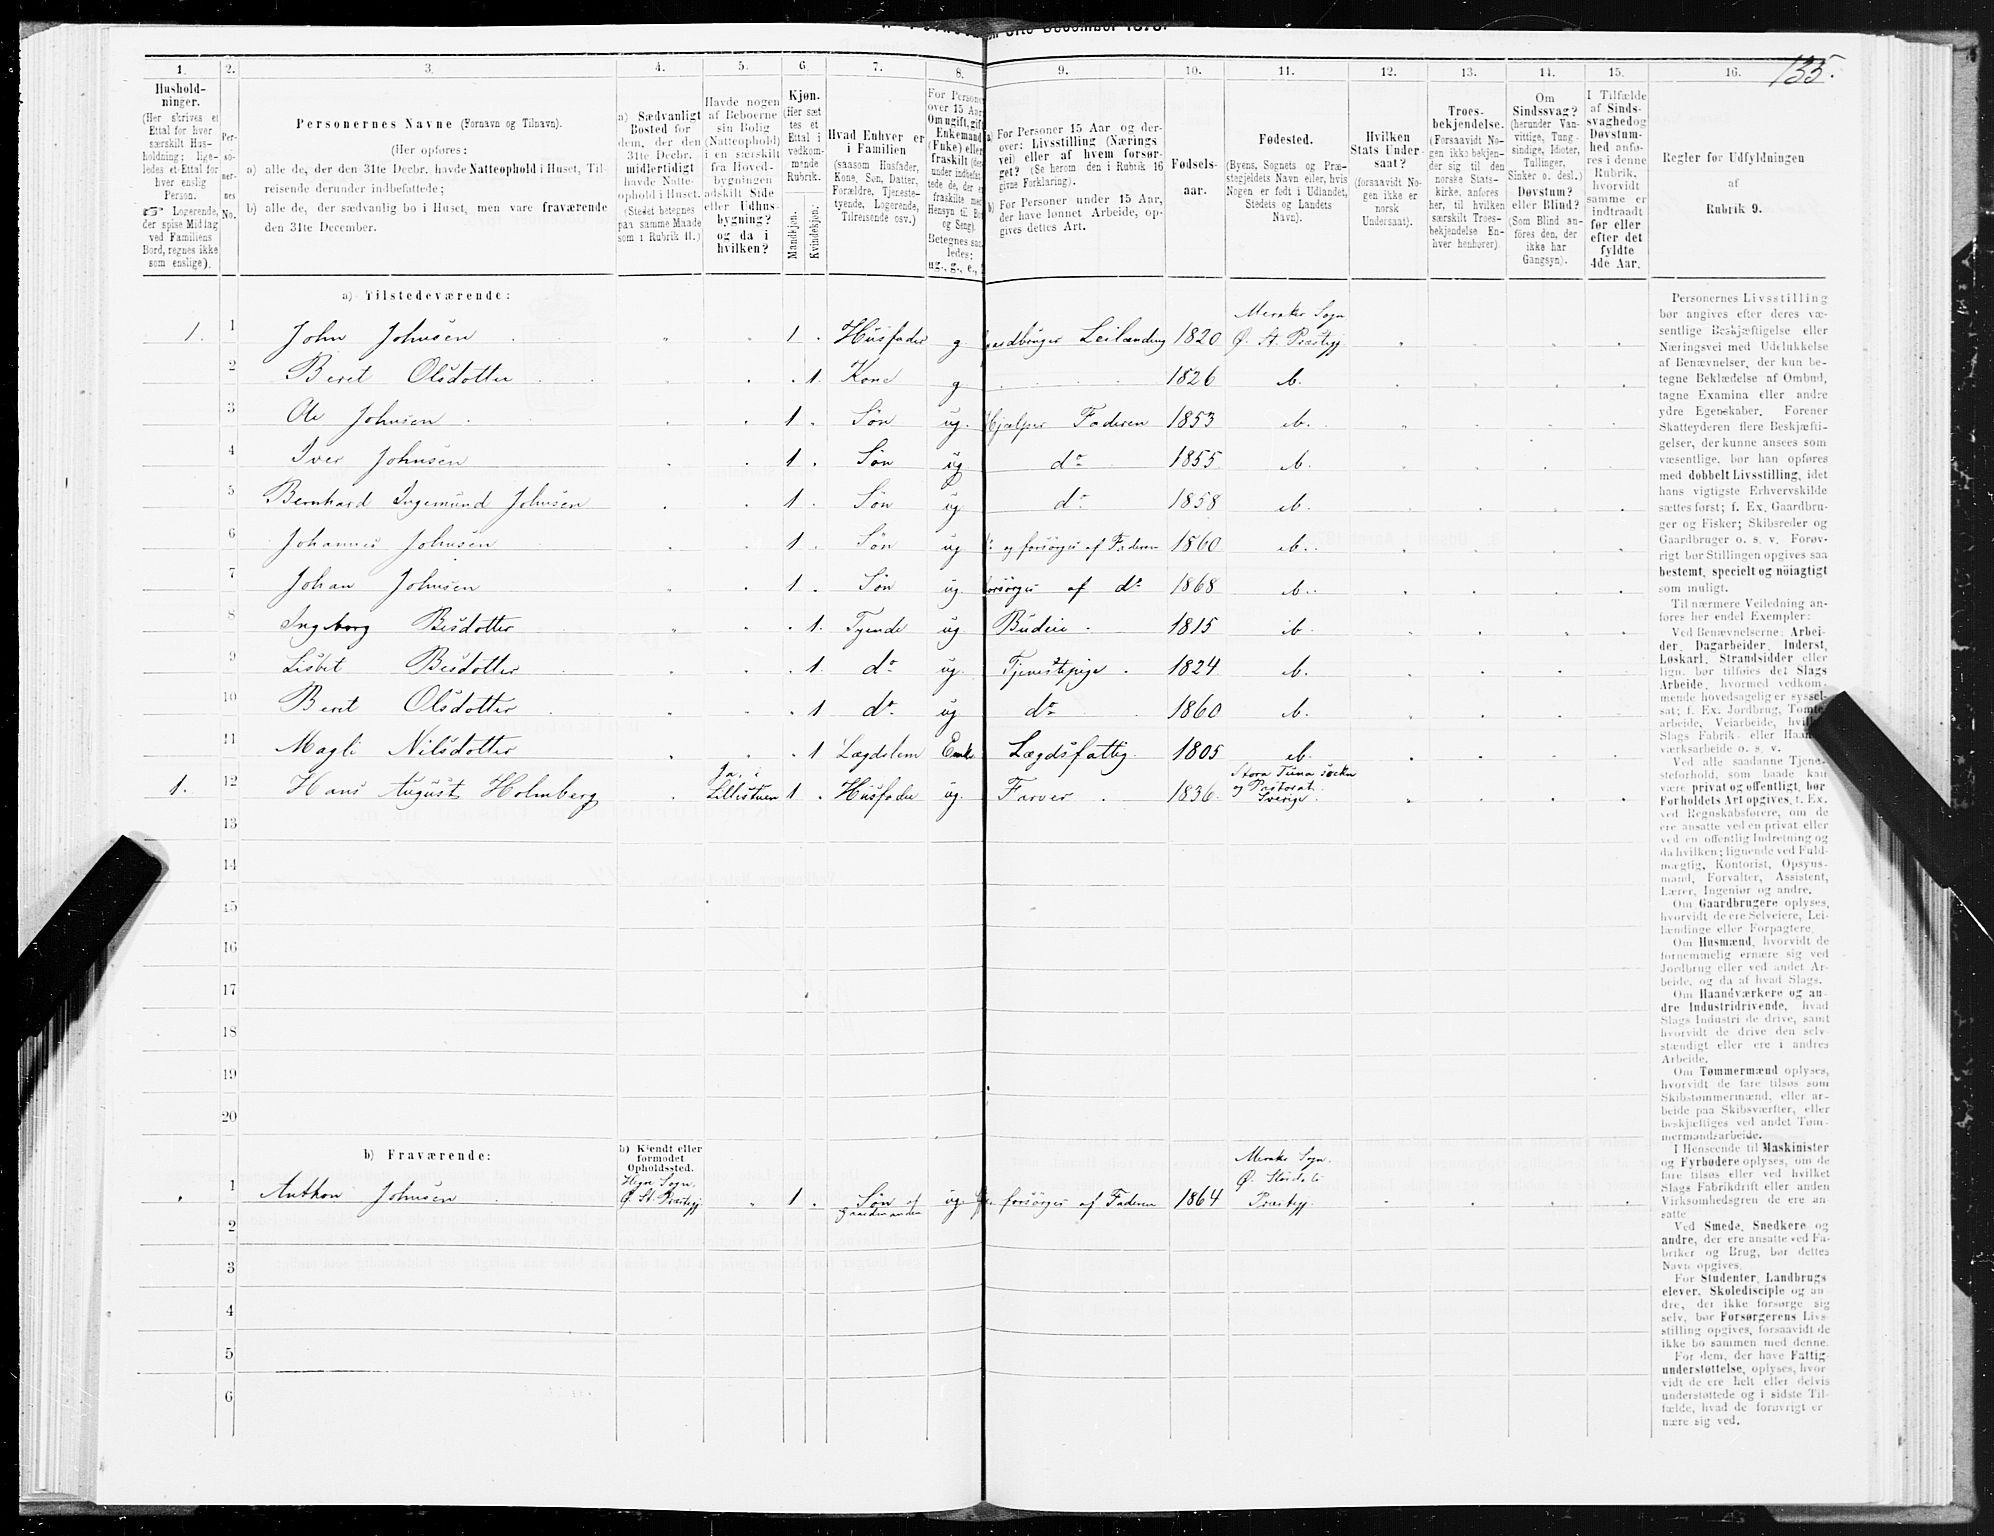 135.
1. 2. 3. 4. 5. 6. 7. 8. 9. 10. 11. 12. 13. 14. 15. 16.
Hushold-
ninger.
(Her skrives et
Ettal for hver
særskilt Hus-
holdning; lige-
ledes et Ettal for
hver enslig
Person.
☞ Logerende,
der spise Middag
ved Familiens
Bord, regnes ikke
som enslige).
Per-
so-
ner-
nes
No.
Personernes Navne (Fornavn og Tilnavn).
(Her opføres:
a) alle de, der den 31te Decbr. havde Natteophold i Huset, Til-
reisende derunder indbefattede;
b) alle de, der sædvanlig bo i Huset, men vare fraværende
den 31te December.
a) Sædvanligt
Bosted for
dem, der den
31te Decbr.
midlertidigt
havde Natte-
ophold i Huset.
(Stedet betegnes
paa samme Maade
som i Rubrik 11.)
Havde nogen
af Beboerne
sin Bolig
(Natteophold)
i en særskilt
fra Hoved-
bygningen
adskilt Side-
eller Udhus-
bygning?
og da i
hvilken?
Kjøn.
(Her sæt-
tes et
Ettal i
vedkom-
mende
Rubrik.
Mandkjøn.
Kvindekjøn.
Hvad Enhver er
i Familien
(saasom Husfader,
Kone, Søn, Datter,
Forældre, Tjeneste-
tyende, Logerende,
Tilreisende osv.)
For Personer
over 15 Aar:
Om ugift, gift
Enkemand
(Enke) eller
fraskilt
a) For Personer 15 Aar og der-
over: Livsstilling (Nærings
vei) eller af hvem forsør-
get? (Se herom den i Rubrik 16
givne Forklaring).
b) For Personer under 15 Aar,
der have lønnet Arbeide, op-
gives dettes Art.
Fødsels-
aar.
Fødested.
(Byens, Sognets og Præ-
stegjeldets Navn eller, hvis
Nogen er født i Udlandet,
Stedets og Landets
Navn).
Hvilken
Stats Under-
saat?
(forsaavidt No-
gen ikke er
norsk
Undersaat).
Troes-
bekjendelse.
(Forsaavidt No-
gen ikke bekjen-
der sig til den
norske Stats-
kirke, anføres
her, til hvilken
særskilt Troes-
bekjendelse En-
hver henhører).
Om
Sindssvag?
(herunder Van-
vittige, Tung-
sindige, Idioter,
Tullinger,
Sinker o. desl.)
Døvstum?
eller Blind?
(Som Blind an-
føres den, der
ikke har
Gangsyn).
I Tilfælde
af Sinds-
svaghed og
Døvstum-
hed anfø-
res i denne
Rubrik,
hvorvidt
samme er
indtraadt
før eller
efter det
fyldte
4de Aar.
Regler for Udfyldningen
af
Rubrik 9.
a) Tilstedeværende:
1. 1 John Johnsen 1 Husfader g. Leilænding 1820 Meraker Sogn Ø. St. Præstgj.
2 Beret Olsdotter 1. Kone g 1826 ib.
3 Ole Johnsen 1 Søn ug. Hjælper Faderen 1853 ib.
4 Iver Johnsen 1 Søn ug do 1855 ib.
5 Bernhard Ingemund Johnsen 1 Søn ug do 1858 ib.
6 Johannes Johnsen 1 Søn ug og forsørges af Faderen 1860 ib.
7 Johan Johnsen 1. Søn ug forsørges af do 1868 ib.
8 Ingeborg Besdotter 1. Tyende ug Budeie 1815 ib.
9 Lisbet Besdotter 1. do ug. Tjenestepige 1824 ib.
10 Beret Olsdotter 1 do ug do 1860 ib.
11 Magli Nilsdotter 1 Lægdslem Enke Lægdsfattig. 1805 ib.
1. 12 Hans August Holmberg Ja, i Lillestuen 1 Husfader ug. Farver 1836. Stora Tuna socken og Pastorat. Sverige.
13
14
15
16
17
18
19
20
b) Fraværende:
b) Kjendt eller
formodet
Opholdssted.
1 Anthon Johnsen Hegre Sogn. Ø. St. Præstgj. 1 Søn af Gaardmanden ug forsørges af Faderen 1864 Meraker Sogn. Ø. Størdals Præstgj.
2
3
4
5
6
Personernes Livsstilling
bør angives efter deres væ-
sentlige Beskjæftigelse eller
Næringsvei med Udelukkelse
af Benævnelser, der kun be-
tegne Beklædelse af Ombud,
tagne Examina eller andre
ydre Egenskaber. Forener
Skatteyderen flere Beskjæfti-
gelser, der kunne ansees som
væsentlige, bør han opføres
med dobbelt Livsstilling, idet
hans vigtigste Erhvervskilde
sættes først; f. Ex. Gaardbru-
ger og Fisker; Skibsreder og
Gaardbruger o. s. v. Forøv-
rigt bør Stillingen opgives saa
bestemt, specielt og nöiagtigt
som muligt.
Til nærmere Veiledning an-
føres her endel Exempler:
Ved Benævnelserne: Arbei-
der, Dagarbeider, Inderst,
Løskarl, Strandsidder eller
lign. bør tilføies det Slags
Arbeide, hvormed vedkom-
mende hovedsagelig er syssel-
sat; f. Ex. Jordbrug, Tomte-
arbeide, Veiarbeide, hvilket
Slags Fabrik- eller Haand-
værksarbeide o. s. v.
Ved alle saadanne Tjene-
steforhold, som baade kan
være privat og offentligt, bør
Forholdets Art opgives, f. Ex.
ved Regnskabsførere, om de
ere ansatte ved en privat eller
ved en offentlig Indretning og
da hvilken; lignende ved Fuld-
mægtig, Kontorist, Opsyns-
mand, Forvalter, Assistent,
Lærer, Ingeniør og andre.
Om Gaardbrugere oplyses,
hvorvidt de ere Selveiere, Lei-
lændinge eller Forpagtere.
Om Husmænd, hvorvidt de
fornemmelig ernære sig ved
Jordbrug eller ved andet Ar-
beide, og da af hvad Slags.
Om Haandværkere og an-
dre Industridrivende, hvad
Slags Industri de drive, samt
hvorvidt de drive den selv-
stændigt eller ere i andres
Arbeide.
Om Tømmermænd oplyses,
hvorvidt de fare tilsøs som
Skibstømmermænd, eller ar-
beide paa Skibsværfter, eller
beskjæftiges ved andet Tøm-
mermandsarbeide.
I Henseende til Maskinister
og Fyrbødere oplyses, om de
fare tilsøs eller ved hvilket
Slags Fabrikdrift eller anden
Virksomhedsgren de ere an-
satte.
Ved Smede, Snedkere og
andre, der ere ansatte ved Fa-
briker og Brug, bør dettes
Navn opgives.
For Studenter, Landbrugs
elever, Skoledisciple og an-
dre, der ikke forsørge sig
selv, bør Forsørgerens Livs-
stilling opgives, forsaavidt de
ikke bo sammen med denne.
For dem, der have Fattig-
understøttelse, oplyses, hvor-
vidt de ere helt eller delvis
understøttede og i sidste Til-
fælde, hvad de forøvrigt er
nære sig ved.